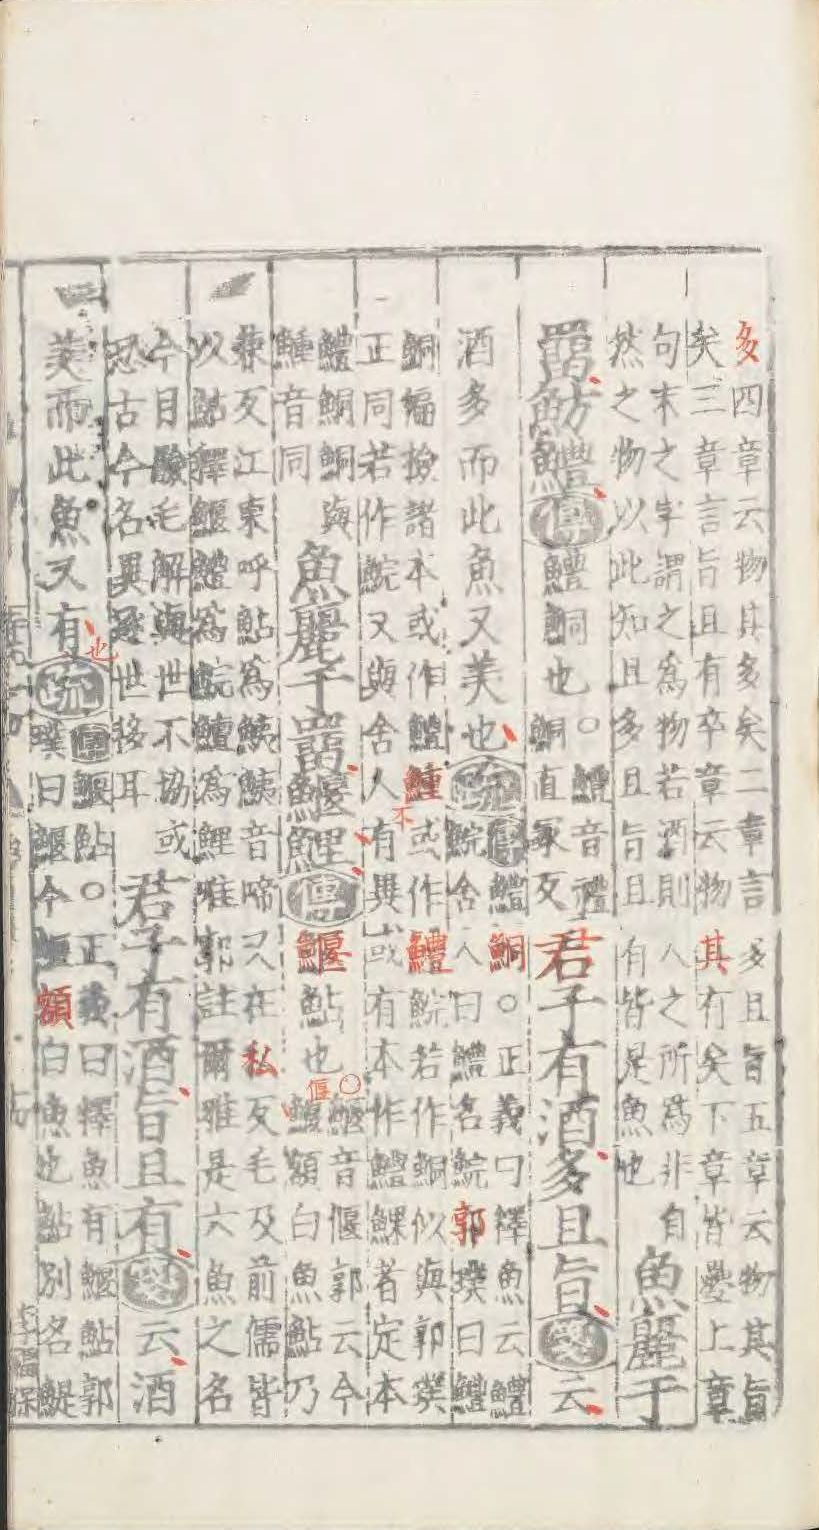 多四章云物其多矣二章言多且旨五章云物其旨
矣三章言旨且有卒章云物其有矣下章皆疊上章
句末之字謂之爲物若酒則人之所爲非自
然之物以此知且多且旨且有皆是魚也
魚麗于
罶魴鱧傳鱧鮦也○
鱧音禮
鮦直冢反
君子有酒多且旨箋云
酒多而此魚又美也疏
傳鱧鮦○正義曰釋魚云鱧
鯇舍人曰鱧名鯇郭璞曰鱧
鮦徧檢諸本或作鱧或作鱧鯇若作鮦似與郭璞
正同若作鯇又與舍人不有異或有本作鱧鰥者定本
鱧鮦鮦與
音同
魚麗于罶鰋鯉傳鰋鮎也
○鰋音偃郭云今
偃鰋額白魚鮎乃
兼反江東呼鮎爲鮧鮧音啼又在私反毛及前儒皆
以鮎釋鰋鱧爲鯇鱣爲鯉唯郭註爾雅是六魚之名
今目驗毛解與世不協或
恐古今名異逐世移耳
君子有酒旨且有箋云酒
美而此魚又有也疏
傳鰋鮎○正義曰釋魚有鰋鮎郭
璞曰鰋今鰋額白魚也鮎別名鯷